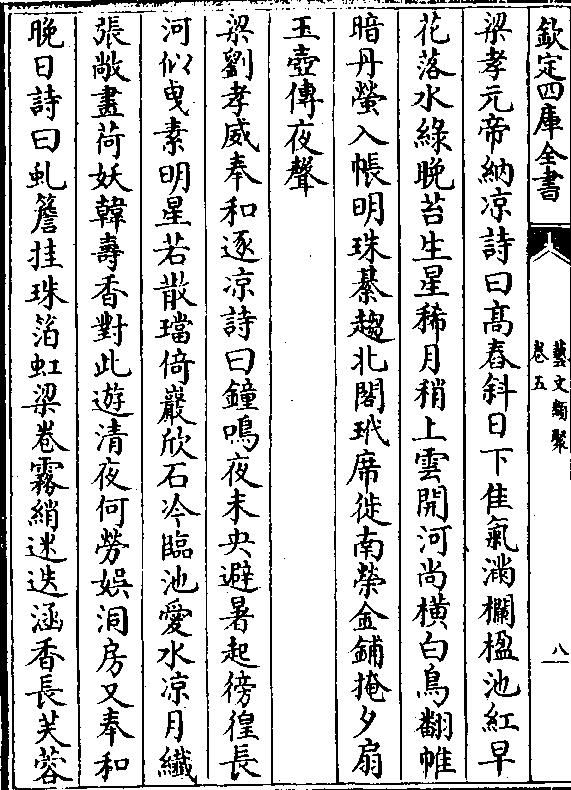 欽定四庫全書
藝文類聚
卷五
八
梁孝元帝納凉詩曰髙舂斜日下佳氣滿欄楹池紅早
花落水綠晚苔生星稀月稍上雲開河尚橫白鳥翻帷
暗丹螢入帳明珠綦趨北閣玳席徙南榮金鋪掩夕扇
玉壺傳夜聲
梁劉孝威奉和逐凉詩曰鐘鳴夜未央避暑起徬徨長
河似曳素明星若散璫倚巖欣石冷臨池愛水凉月纖
張敞畫荷妖韓壽香對此遊清夜何勞娛洞房又奉和
晚日詩曰虬簷挂珠箔虹梁卷霧綃迷迭涵香長芙蓉